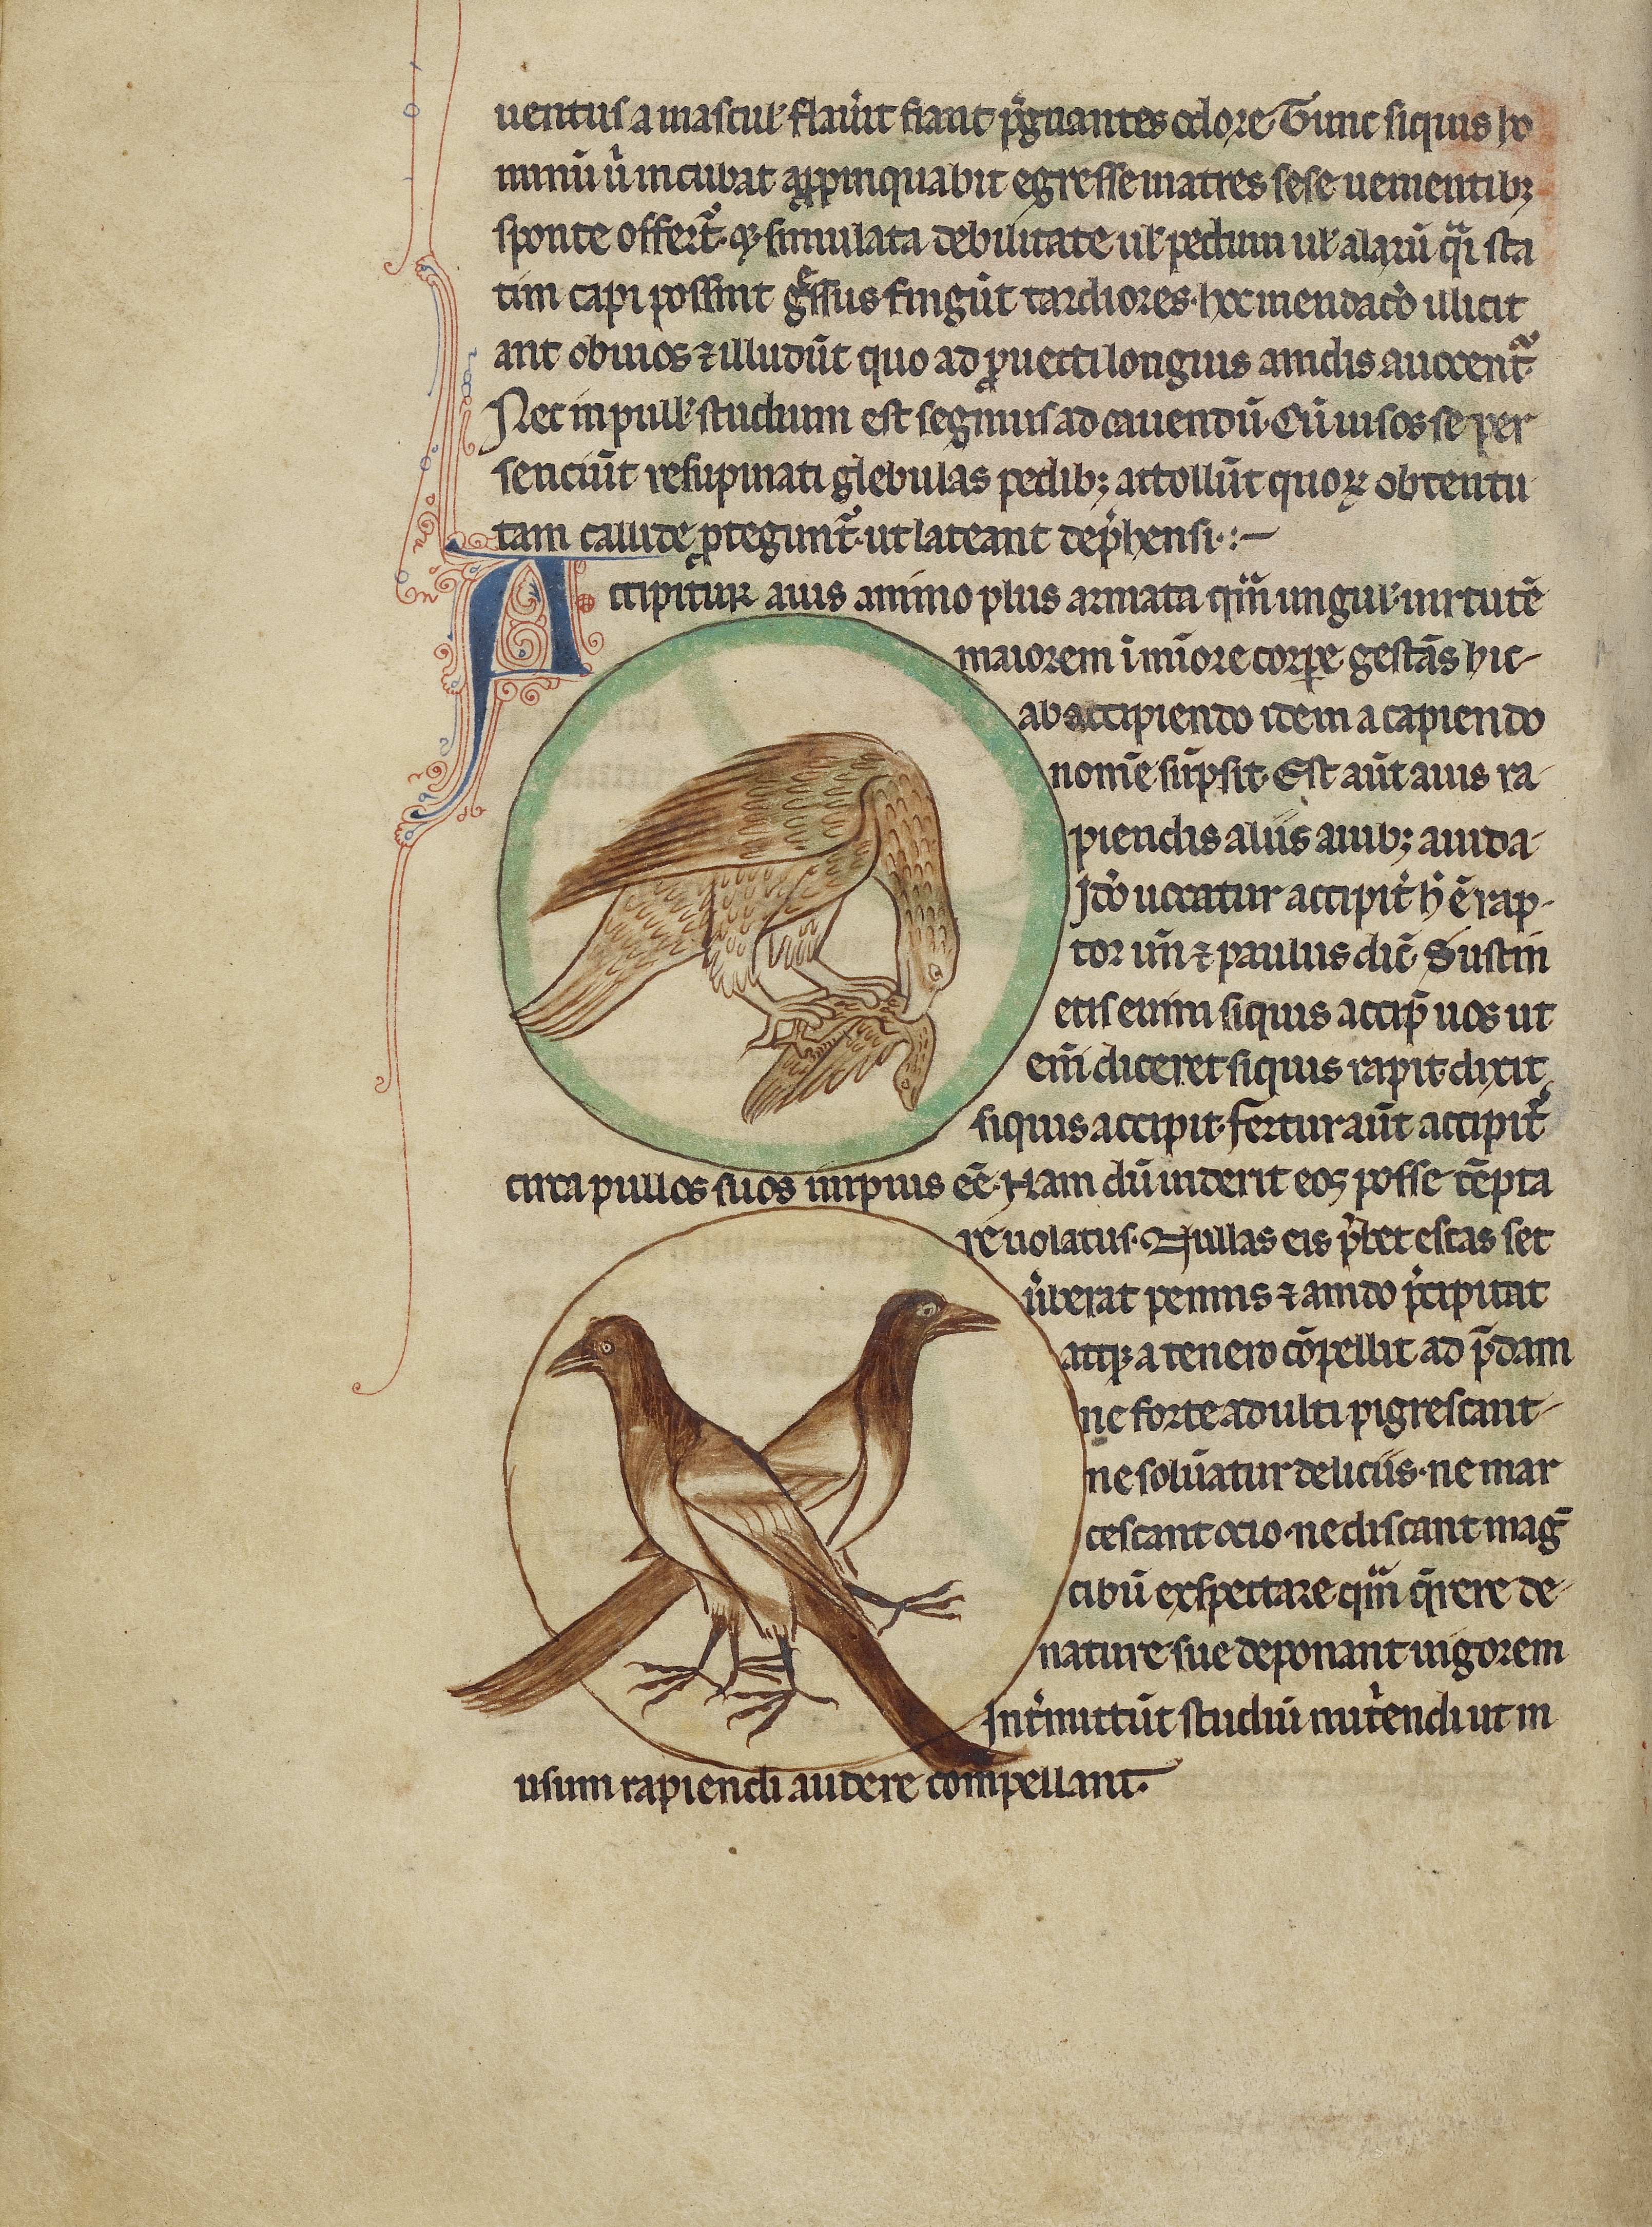 uentus a mascul' flau'it fiant p̄gnantes odore Tunc siquis ho
minū ū incubat app̱inquabit egresse matres sese uementib;
sponte offert̄. q; simulata debilitate ul' pedum ul' alarū q̄i sta
tim capi possint g̊ssus fingūt tardiores. hoc mendatio illicit
ant obuios ⁊ illudūt quo ad ꝓuecti longius a nidis auocent̄
Nec in pull' studium est segnius ad cauendū. Cū uisos se per
senciūt resupinati glebulas pedib; attollūt quoꝝ obtentu
tam callide ꝓtegunt̄. ut lateant dep̄hensi. :-
Accipitur auis animo plus armata qm̄ ungul' uirtutē
maiorem ī miōre corꝑe gestās hic
ab accipiendo idem a capiendo
nomē sūpsit. Est aūt auis ra
piendis aliis auib; auida
Ido uocatur accipit̄ h̄ ē rap
tor un̄ ⁊ paulus dic̄ Sustin
etis enim siquis accip̄ uos ut
em̄ diceret siquis rapit. dixit
siquis accipit. fertur aūt accipit̄
circa pullos suos impius eē. Nam dū uiderit eos posse tēpta
re uolatus. Nullas eis p̄bet escas set
ūberat pennis ⁊ a nido p̄cipitat
atq; a tenero cōpellit ad p̄dam
ne forte adulti pigrescant
ne soluātur deliciis. ne mar
cescant ocio. ne discant maḡ
cibū exspectare qm̄ q̄rere de
nature sue deponant uigorem
Int̄mittūt studiū nut̄endi ut in
usum rapiendi audere compellant.